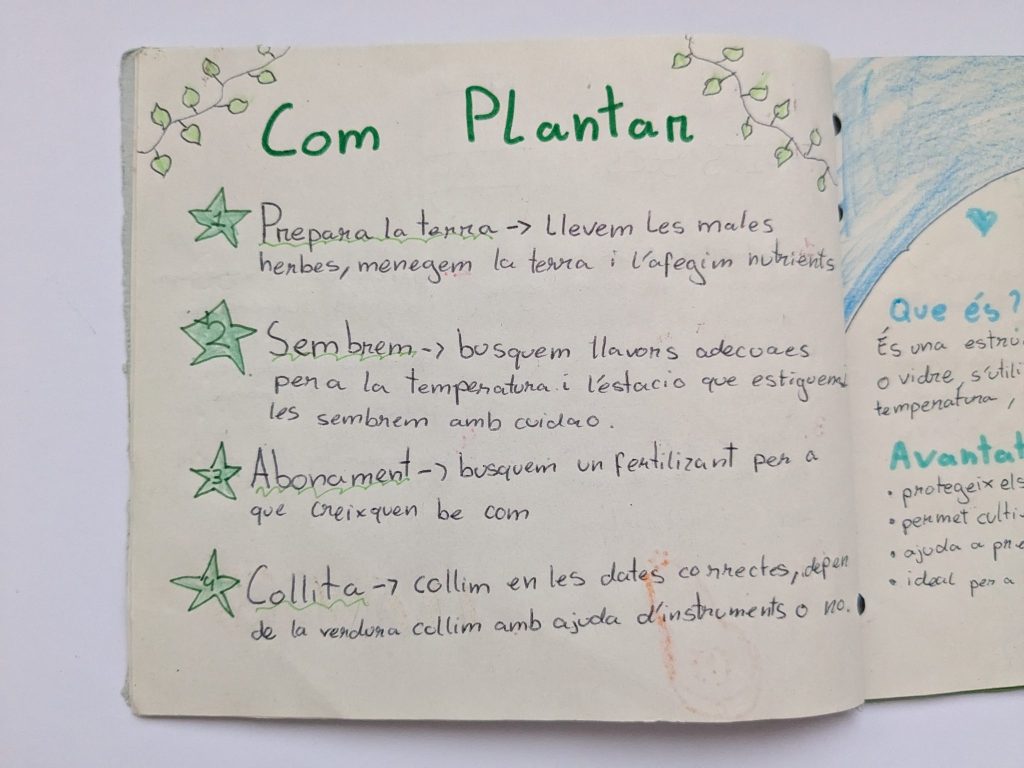 Com Plantar
1 Prepara la terra -> llevem les males
herbes, menegem la terra i l'afegim nutrients
2 Sembrem -> busquem llavors adecuaes
per a la temperatura i l'estacio que estiguem
les sembrem amb cuidao.
3 Abonament -> busquem un fertilizant per a
que creixquen be com
4 Collita -> collim en les dates correctes, depen
de la verdura collim amb ajuda d'instruments o no.
Que és?
És una estru
o vidre, s'utili
temperatura,
Avantat
• protegeix els
• permet culti
• ajuda a pre
• ideal per a